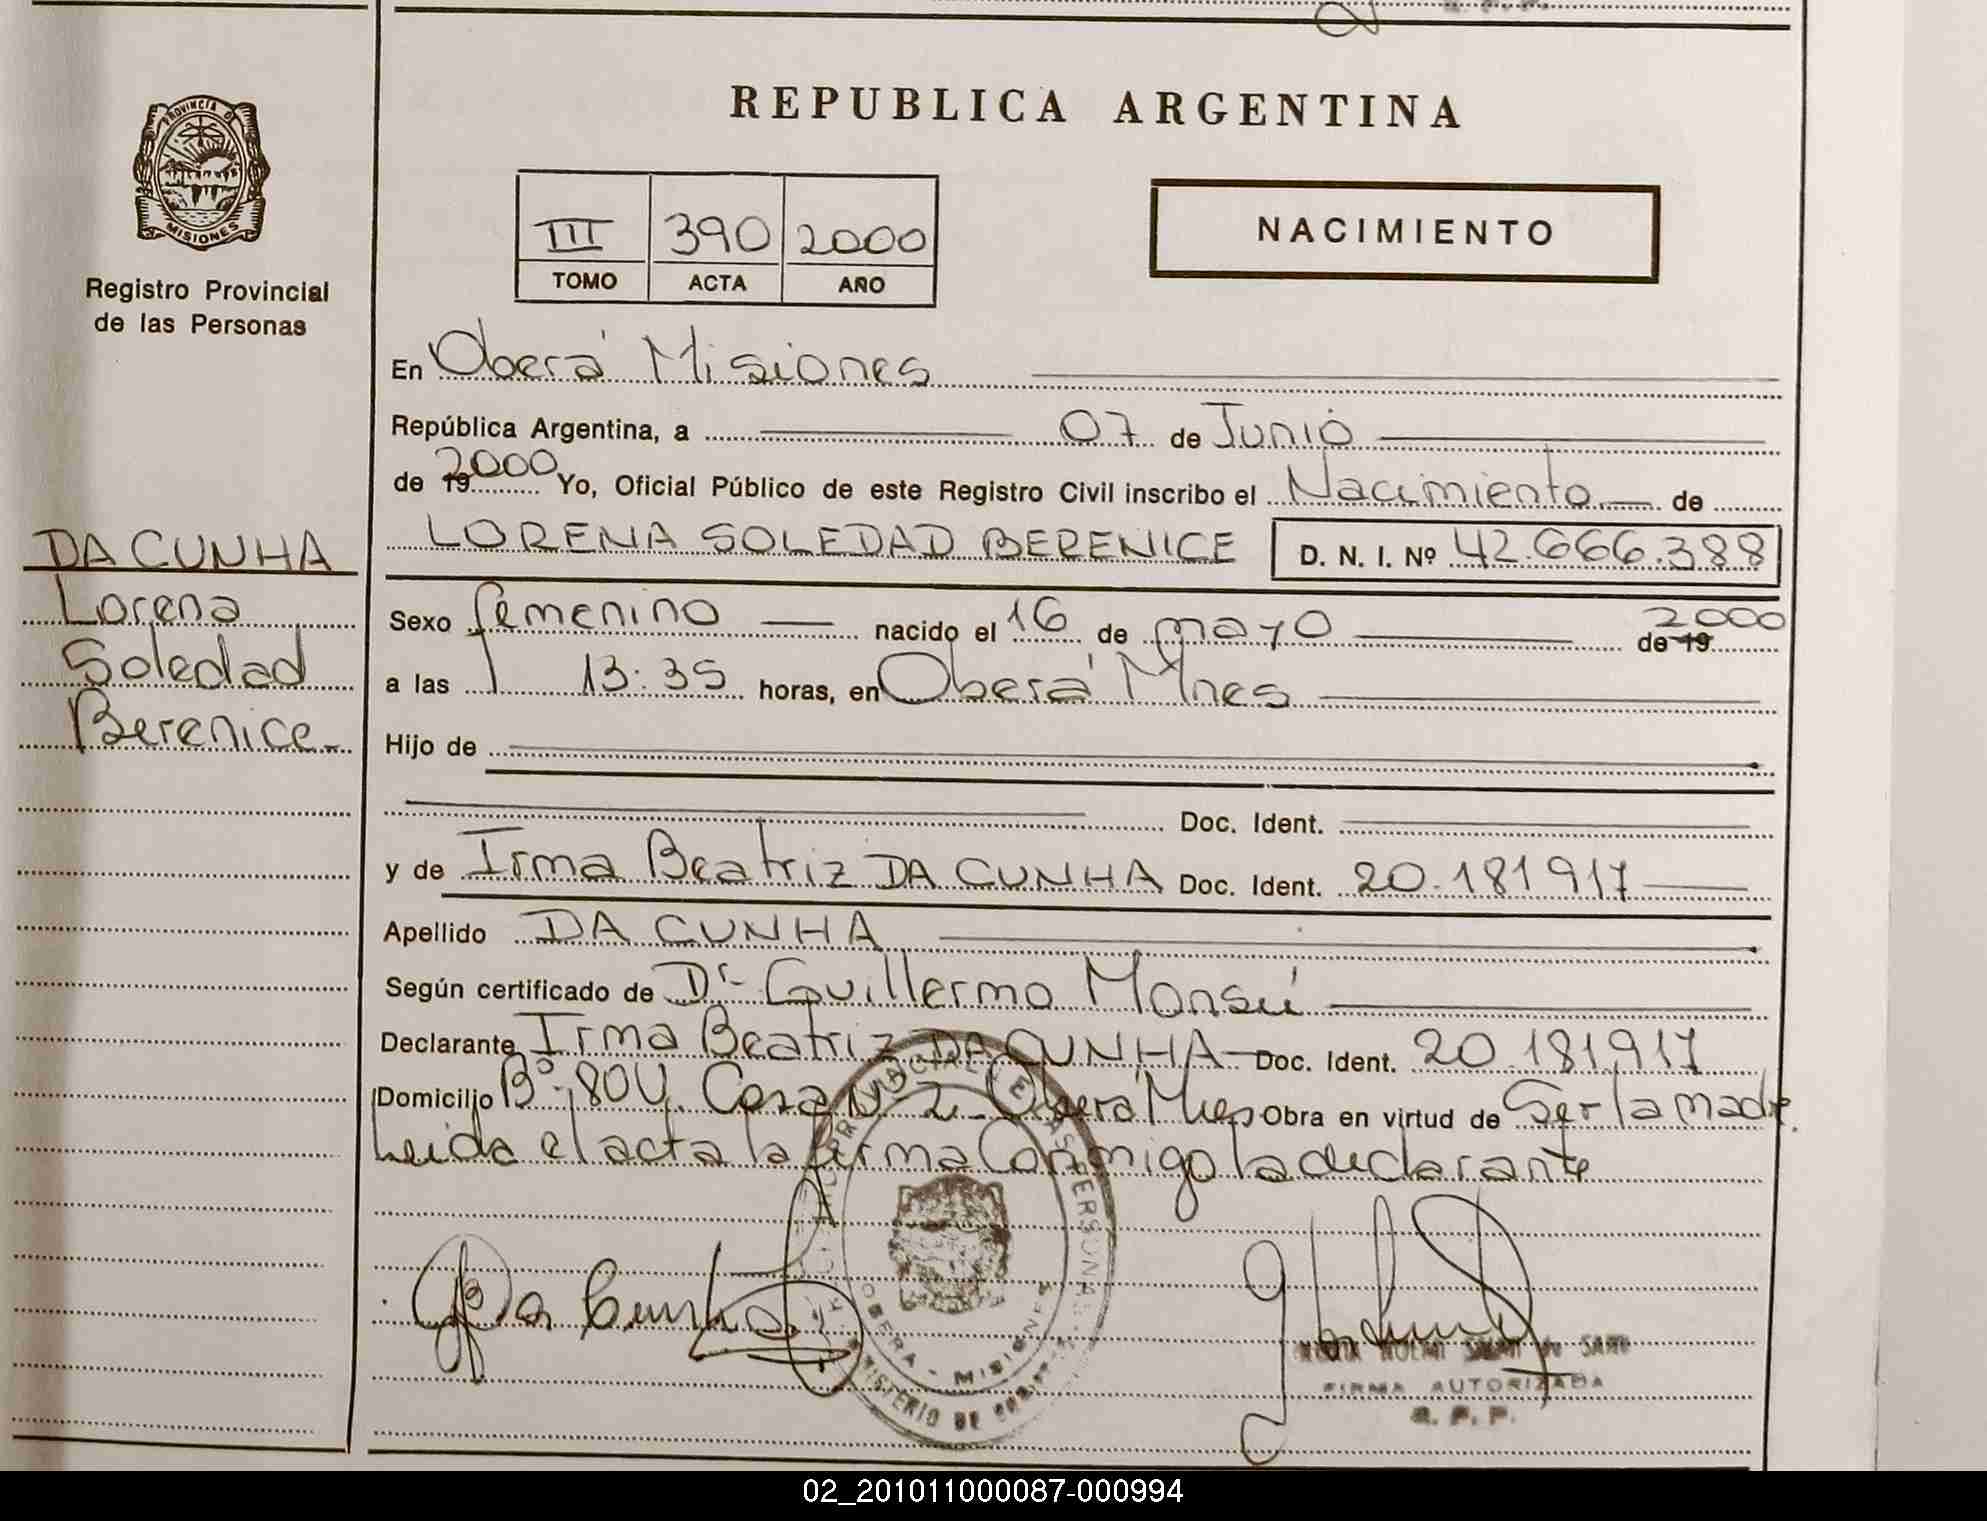 REPUBLICA ARGENTINA
PROVINCIA D
MISIONES
Registro Provincial
de las Personas
III 390 2000
TOMO ACTA AÑO
NACIMIENTO
En Oberá Misiones
República Argentina, a 07 de Junio
de 19 2000 Yo, Oficial Público de este Registro Civil inscribo el Nacimiento de
LORENA SOLEDAD BERENICE D. N. I. Nº 42.666.388
DA CUNHA
Lorena
Soledad
Berenice
Sexo femenino nacido el 16 de mayo de 19 2000
a las 13:35 horas, en Oberá Mnes
Hijo de
Doc. Ident.
y de Irma Beatriz DA CUNHA Doc. Ident. 20.181917
Apellido DA CUNHA
Según certificado de Dr Guillermo Monsú
Declarante Irma Beatriz DA CUNHA Doc. Ident. 20.181.917
Domicilio Bº 80V. Casa Nº 2 Oberá Mnes Obra en virtud de Ser la madre.
Leida el acta la firma Conmigo la declarante
Da Cunha
OBERA - MISIONES
MINISTERIO DE
FIRMA AUTORIZADA
R. P. P.
02_201011000087-000994